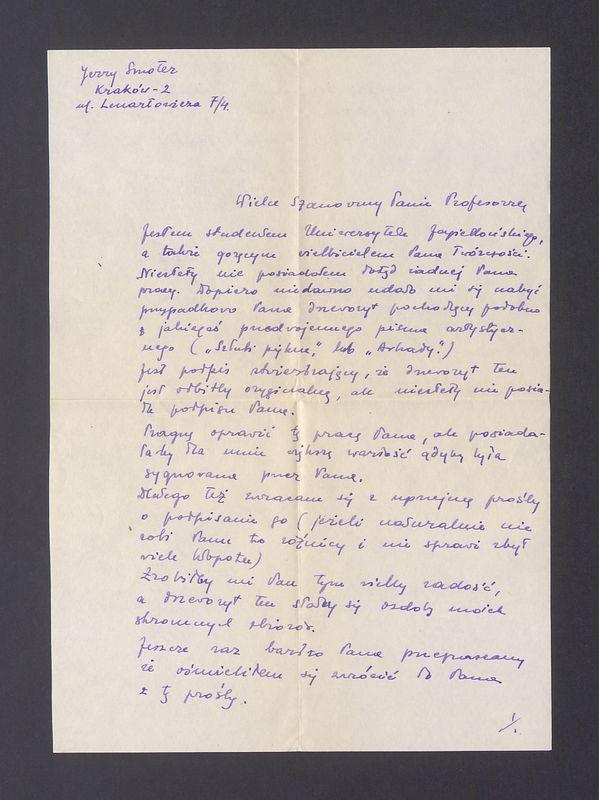 Jerzy Smoter
Kraków-2
ul. Lenartowicza 7/4.
Wielce Szanowny Panie Profesorze
Jestem studentem Uniwersytetu Jagiellońskiego,
a także gorącym wielbicielem Pana Twórczości.
Niestety nie posiadałem dotąd żadnej Pana
pracy. Dopiero niedawno udało mi się nabyć
przypadkowo Pana drzeworyt pochodzący podobno
z jakiegoś przedwojennego pisma artystycz-
nego („Sztuki piękne," lub „Arkady".)
Jest podpis stwierdzający, że drzeworyt ten
jest odbitką oryginalną, ale niestety nie posia-
da podpisu Pana.
Pragnę oprawić tę pracę Pana, ale posiada-
łaby dla mnie większą wartość gdyby była
sygnowana przez Pana.
Dlatego też zwracam się z uprzejmą prośbą
o podpisanie go (jeżeli naturalnie nie
robi Panu to różnicy i nie sprawi zbyt
wiele kłopotu)
Zrobiłby mi Pan tym wielką radość,
a drzeworyt ten stałby się ozdobą moich
skromnych zbiorów.
Jeszcze raz bardzo Pana przepraszam
że ośmieliłem się zwrócić do Pana
z tą prośbą.
1/.